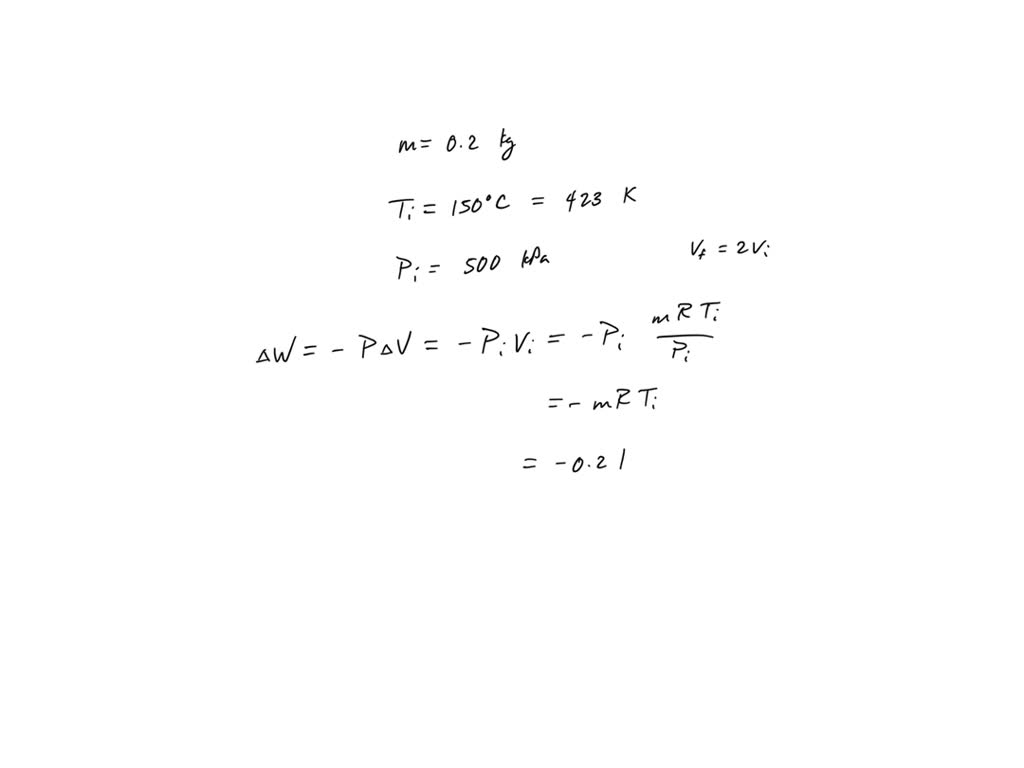 m = 0.2 kg
Ti = 150°C = 423 K
Pi = 500 kPa
Vf = 2Vi
ΔW = - PΔV = - Pi Vi = - Pi mRTi/Pi
= - mRTi
= - 0.2 |